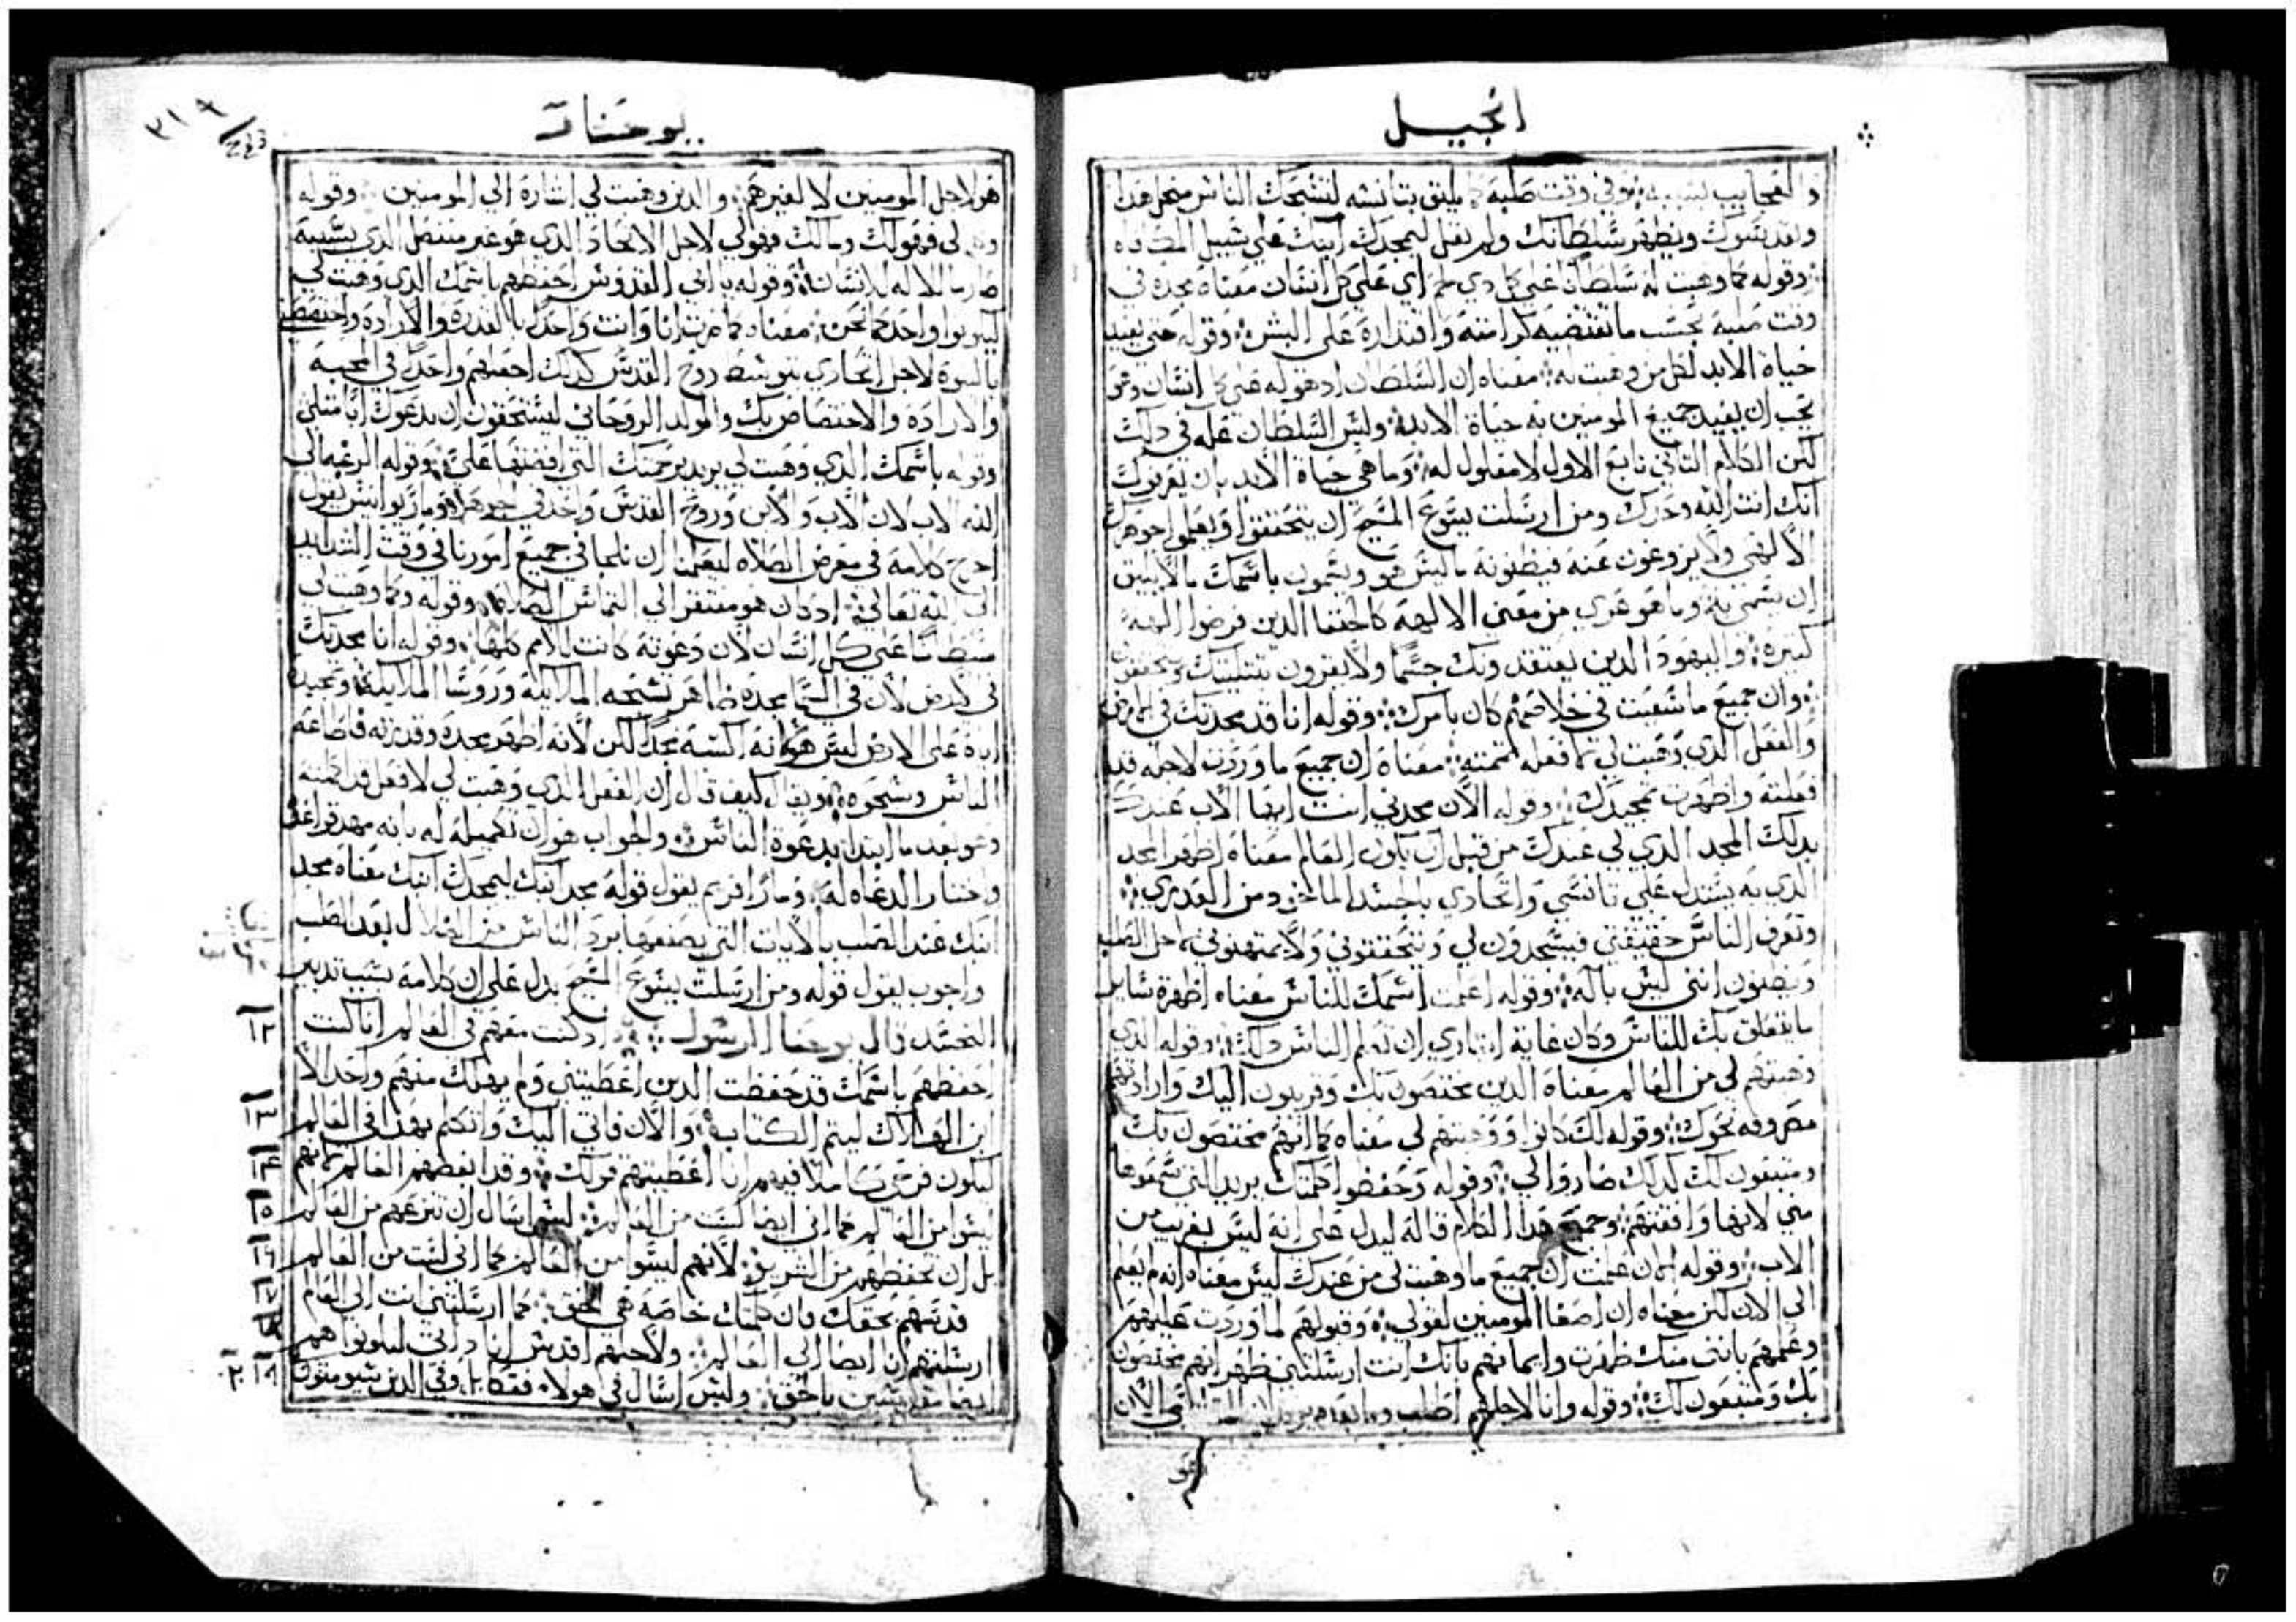 انجيل
وبعد بسوك ويظهر سلطانك ولم يقل ليمجدك ابنك على سبيل
وقوله كما وهبت له سلطان على كل دي لحم اي على كل انسان معناه مجده في
وقت صلبه بحسب ما تقتضيه كرامته واقتداره على البشر وقوله حتى يفيد
حياة الابد لكل من وهبت له معناه ان السلطان اد هو له على كل انسان
يجب ان يفيد جميع المومنين به حياة الابدية وليس السلطان عله في دلك
لكن الكلام التاني تابع الاول لا معلول له وما هي حياة الابد بان يعرفوك
انك انت الله وحدك ومن ارسلت يسوع المسيح ان يتحققوا ويعلموا جوهرك
الالهي ولا يزوغون عنه فيظنونه ما ليس هو ويسمون باسمك ما لا يليق
ان يسمى به وما هو عري من معنى الالهة كالحنفا الدين فرضوا الهة
كتيره واليهود الدين يعتقدونك جسما ولا يقرون بتتليتك
وان جميع ما سعيت في خلاصهم كان بامرك وقوله انا قد مجدتك في الارض
والفعل الدي وهبت لي كما فعله اتممته معناه ان جميع ما وردت لاجله قد
فعلته واظهرت تمجيدك وقوله الان مجدني انت ايها الاب عندك
بدلك المجد الدي لي عندك من قبل ان يكون العالم معناه اظهر المجد
الدي به يستدل على تانسي واتحادي بالجسد الماخود من العدري
وتعرف الناس حقيقتي فيسجدون لي ويتحققوني ولا يمتهنوني لاجل الصلب
ويظنون انني ليس باله وقوله اعلمت اسمك للناس معناه اظهرة ساير
ما يتعلق بك للناس وكان غاية ايتاري ان تعلم الناس دلك وقوله الدي
وهبتهم لي من العالم معناه الدين يختصون بك وقريبون اليك وارادتهم
مصروفه نحوك وقوله لك كانوا ووهبتهم لي معناه كما انهم مختصون بك
ومتبعون لك كدلك صاروا لي وقوله وحفظوا كلمتك يريد التي سمعوها
مني لانها وافقتهم وجميع هدا الكلام قاله ليدل على انه ليس بغريب من
الاب وقوله الان علمت ان جميع ما وهبت لي من عندك ليس معناه انه لم يعلم
الى الان لكن معناه ان اصغا المومنين لقولي وقبولهم لما وردت عليهم
وعلمهم بانني منك ظهرت وايمانهم بانك انت ارسلتني ظهر انهم مختصون
بك ومتبعون لك وقوله وانا لاجلهم اطلب
يوحنا
هو لاجل المومنين لا لغيرهم والدين وهبت لي اشارة الي المومنين وقوله
لي فهو لك وما لك فهو لي لاجل الاتحاد الدي هو غير منفصل الدي بسببه
صار ما للاله للانسان وقوله يا ابي القدوس احفظهم باسمك الدي وهبت لي
ليكونوا واحد كما نحن معناه كما عرفت انا وانت واحدا بالقدرة والارادة
بالبنوة لاجل اتحادي بتوسط روح القدس كدلك اجعلهم واحدا في المحبة
والاراده والاختصاص بك والمولد الروحاني ليستحقون ان يدعوك ابا متلي
وقوله باسمك الدي وهبت لي يريد برحمتك التي افضتها علي وقوله
الله لاب لان الاب والابن وروح القدس واحد في الجوهر وماريوانيس يقول
اخرج كلامه في معرض الصلاه ليعلمنا ان نلجا في جميع امورنا في وقت الشدايد
الى الله تعالى اد كان هو مفتقر الي التماس الصلاه وقوله وكما وهبت لي
سلطانا على كل انسان لان دعوته كانت للامم كلها وقوله انا مجدتك
في الارض لان في السما مجده ظاهر تسبحه الملايكة وروسا الملايكة وتمجيده
اياه على الارض ليس هو انه اكسبه مجدا لكن لانه اظهر مجده وقدرته فاطاعه
الناس وسجدوه ويقال كيف قال ان الفعل الدي وهبت لي لافعل قد اكملته
وهو بعد ما ابتدا بدعوة الناس والجواب هو ان تكميله له بانه مهد قواعده
واختار الدعاه له ومار افريم يقول قوله مجد ابنك ليمجدك ابنك معناه مجد
ابنك عند الصلب بالايات التي يصنعها برد الناس من الضلال بعد الصلب
واجوب يقول قوله ومن ارسلت يسوع المسيح يدل على ان كلامه بسبب تدبير
التجسد قال يوحنا الرسول اد كنت معهم في العالم انا كنت
احفظهم باسمك قد حفظت الدين اعطيتني ولم يهلك منهم واحد الا
ابن الهلاك ليتم الكتاب والان فاني اتي اليك واتكلم بهدا في العالم
ليكون فرحي كاملا فيهم انا اعطيتهم قولك وقد ابغضهم العالم لانهم
ليسوا من العالم كما اني ايضا لست من العالم ليس اسال ان تنزعهم من العالم
بل ان تحفظهم من الشرير لانهم ليسوا من العالم كما اني لست من العالم
قدسهم بحقك فان كلمتك خاصة هي الحق كما ارسلتني انت الي العالم
ارسلتهم انا ايضا الي العالم ولاجلهم اقدس انا داتي ليكونوا هم
ايضا مقدسين بالحق وليس اسال في هولا فقط بل وفي الدين سيومنون
١٢
١٣
١٤
١٥
١٦
١٧
١٨
١٩ ٢٠